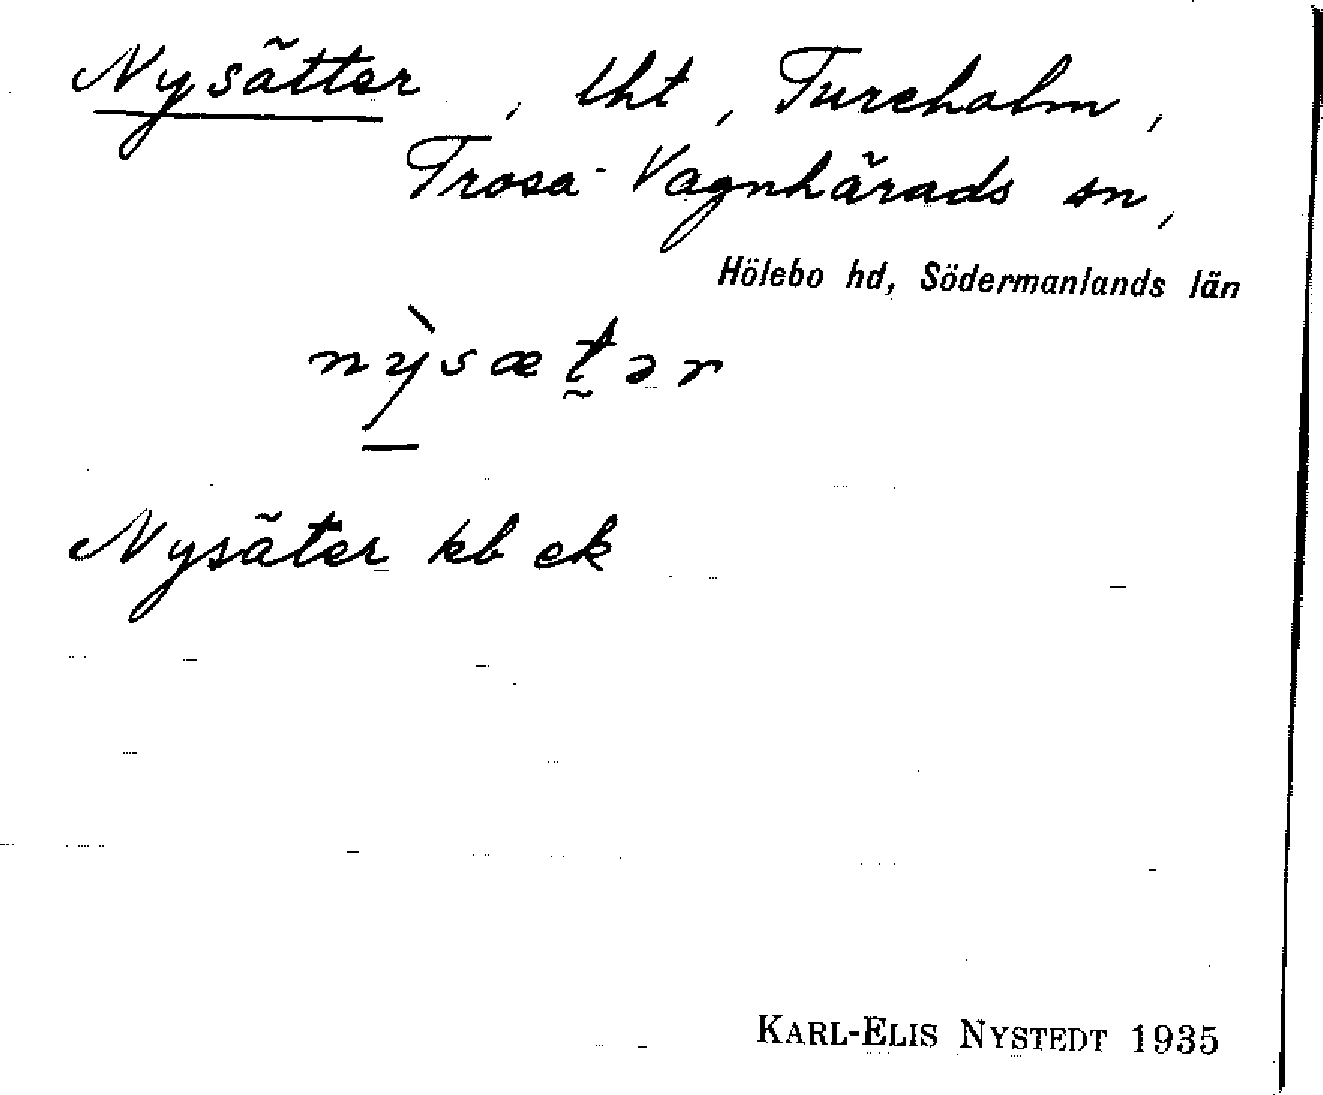 Nysätter, tht, Tureholm,
Trosa-Vagnhärads sn,
Hölebo hd, Södermanlands län
nỳsætər
Nysäter kb ek
KARL-ELIS NYSTEDT 1935